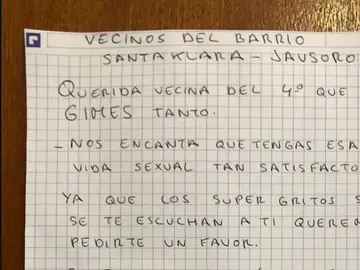 VECINOS DEL BARRIO
SANTAKLARA - JAUSORO
QUERIDA VECINA DEL 4º QUE
GIMES TANTO.
- NOS ENCANTA QUE TENGAS ESA
VIDA SEXUAL TAN SATISFACTO
YA QUE LOS SUPER GRITOS S
SE TE ESCUCHAN A TI QUERE
PEDIRTE UN FAVOR.